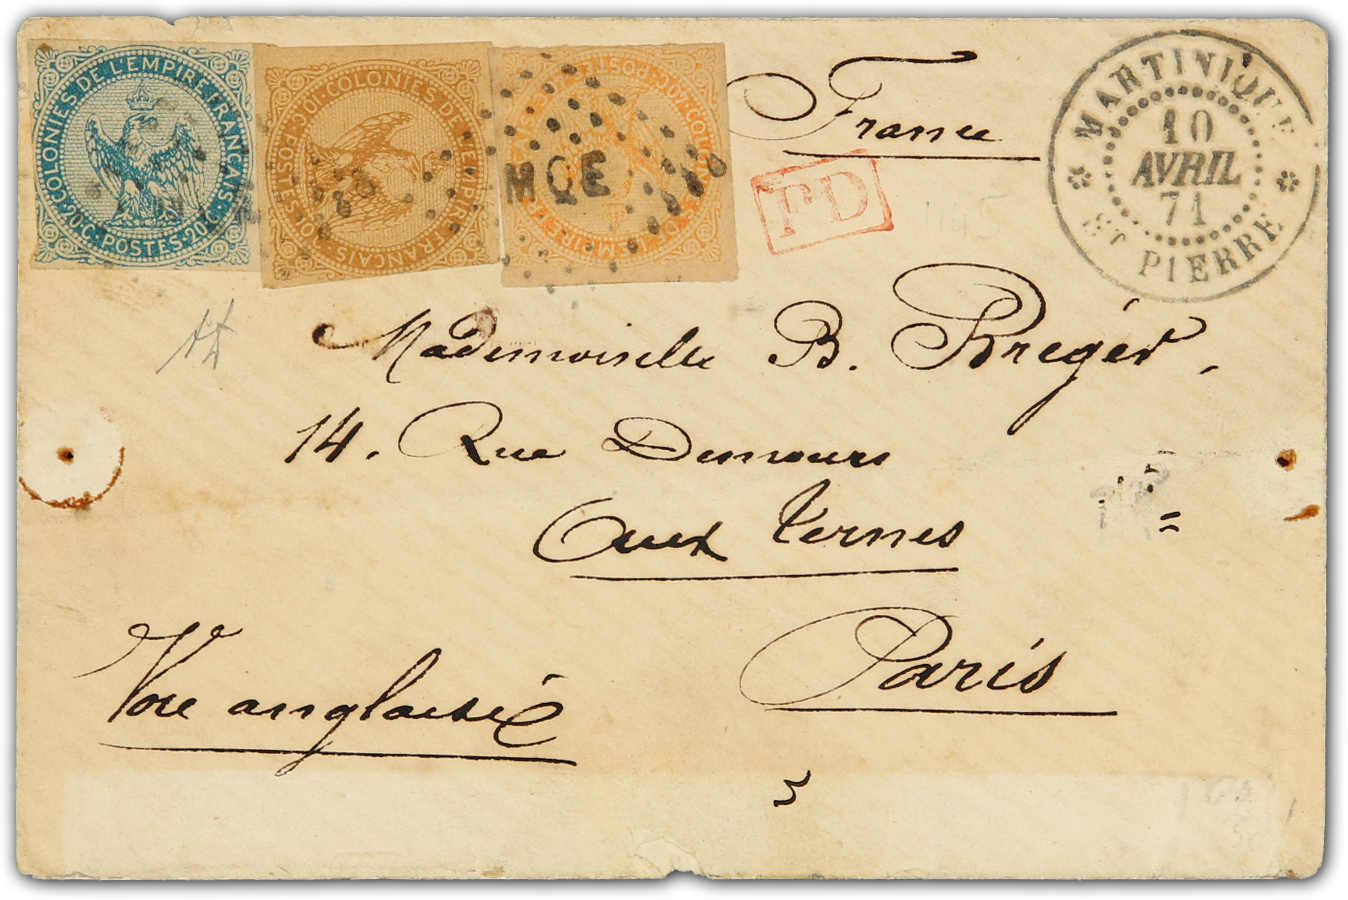 COLONIES DE L'EMPIRE FRANÇAIS
20c POSTES 20c
10c COLONIES DE L'EMPIRE FRANÇAIS
POSTES
MQE
France
PD
MARTINIQUE
10
AVRIL
71
ST PIERRE
Mademoiselle B. Kreger.
14. Rue Demours
Aux Ternes
Paris
Voie anglaise